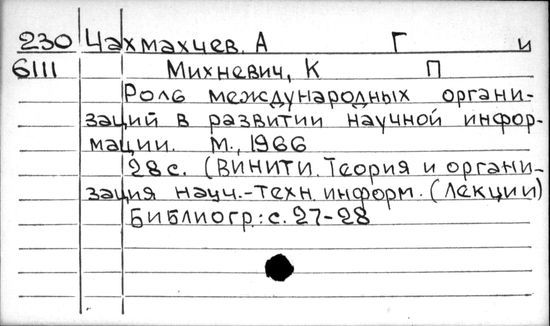 230 Чахмахчев. А Г и
6111 Михневич, К П
Роль международных органи-
заций в развитии научной инфор-
мации. М., 1966
28с. (ВИНИТИ. Теория и органи-
зация науч.-техн. информ. (Лекции)
Библиогр.: с. 27-28